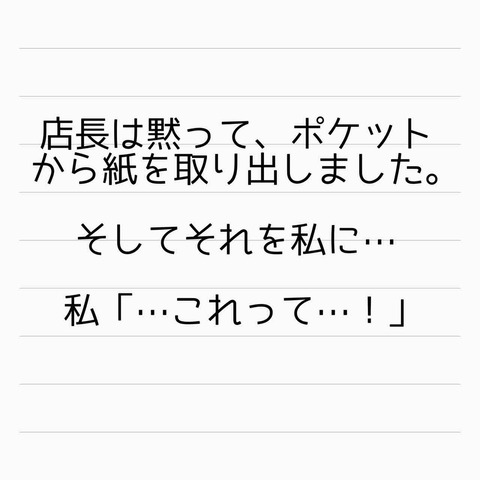 店長は黙って、ポケット
から紙を取り出しました。
そしてそれを私に…
私「…これって…！」